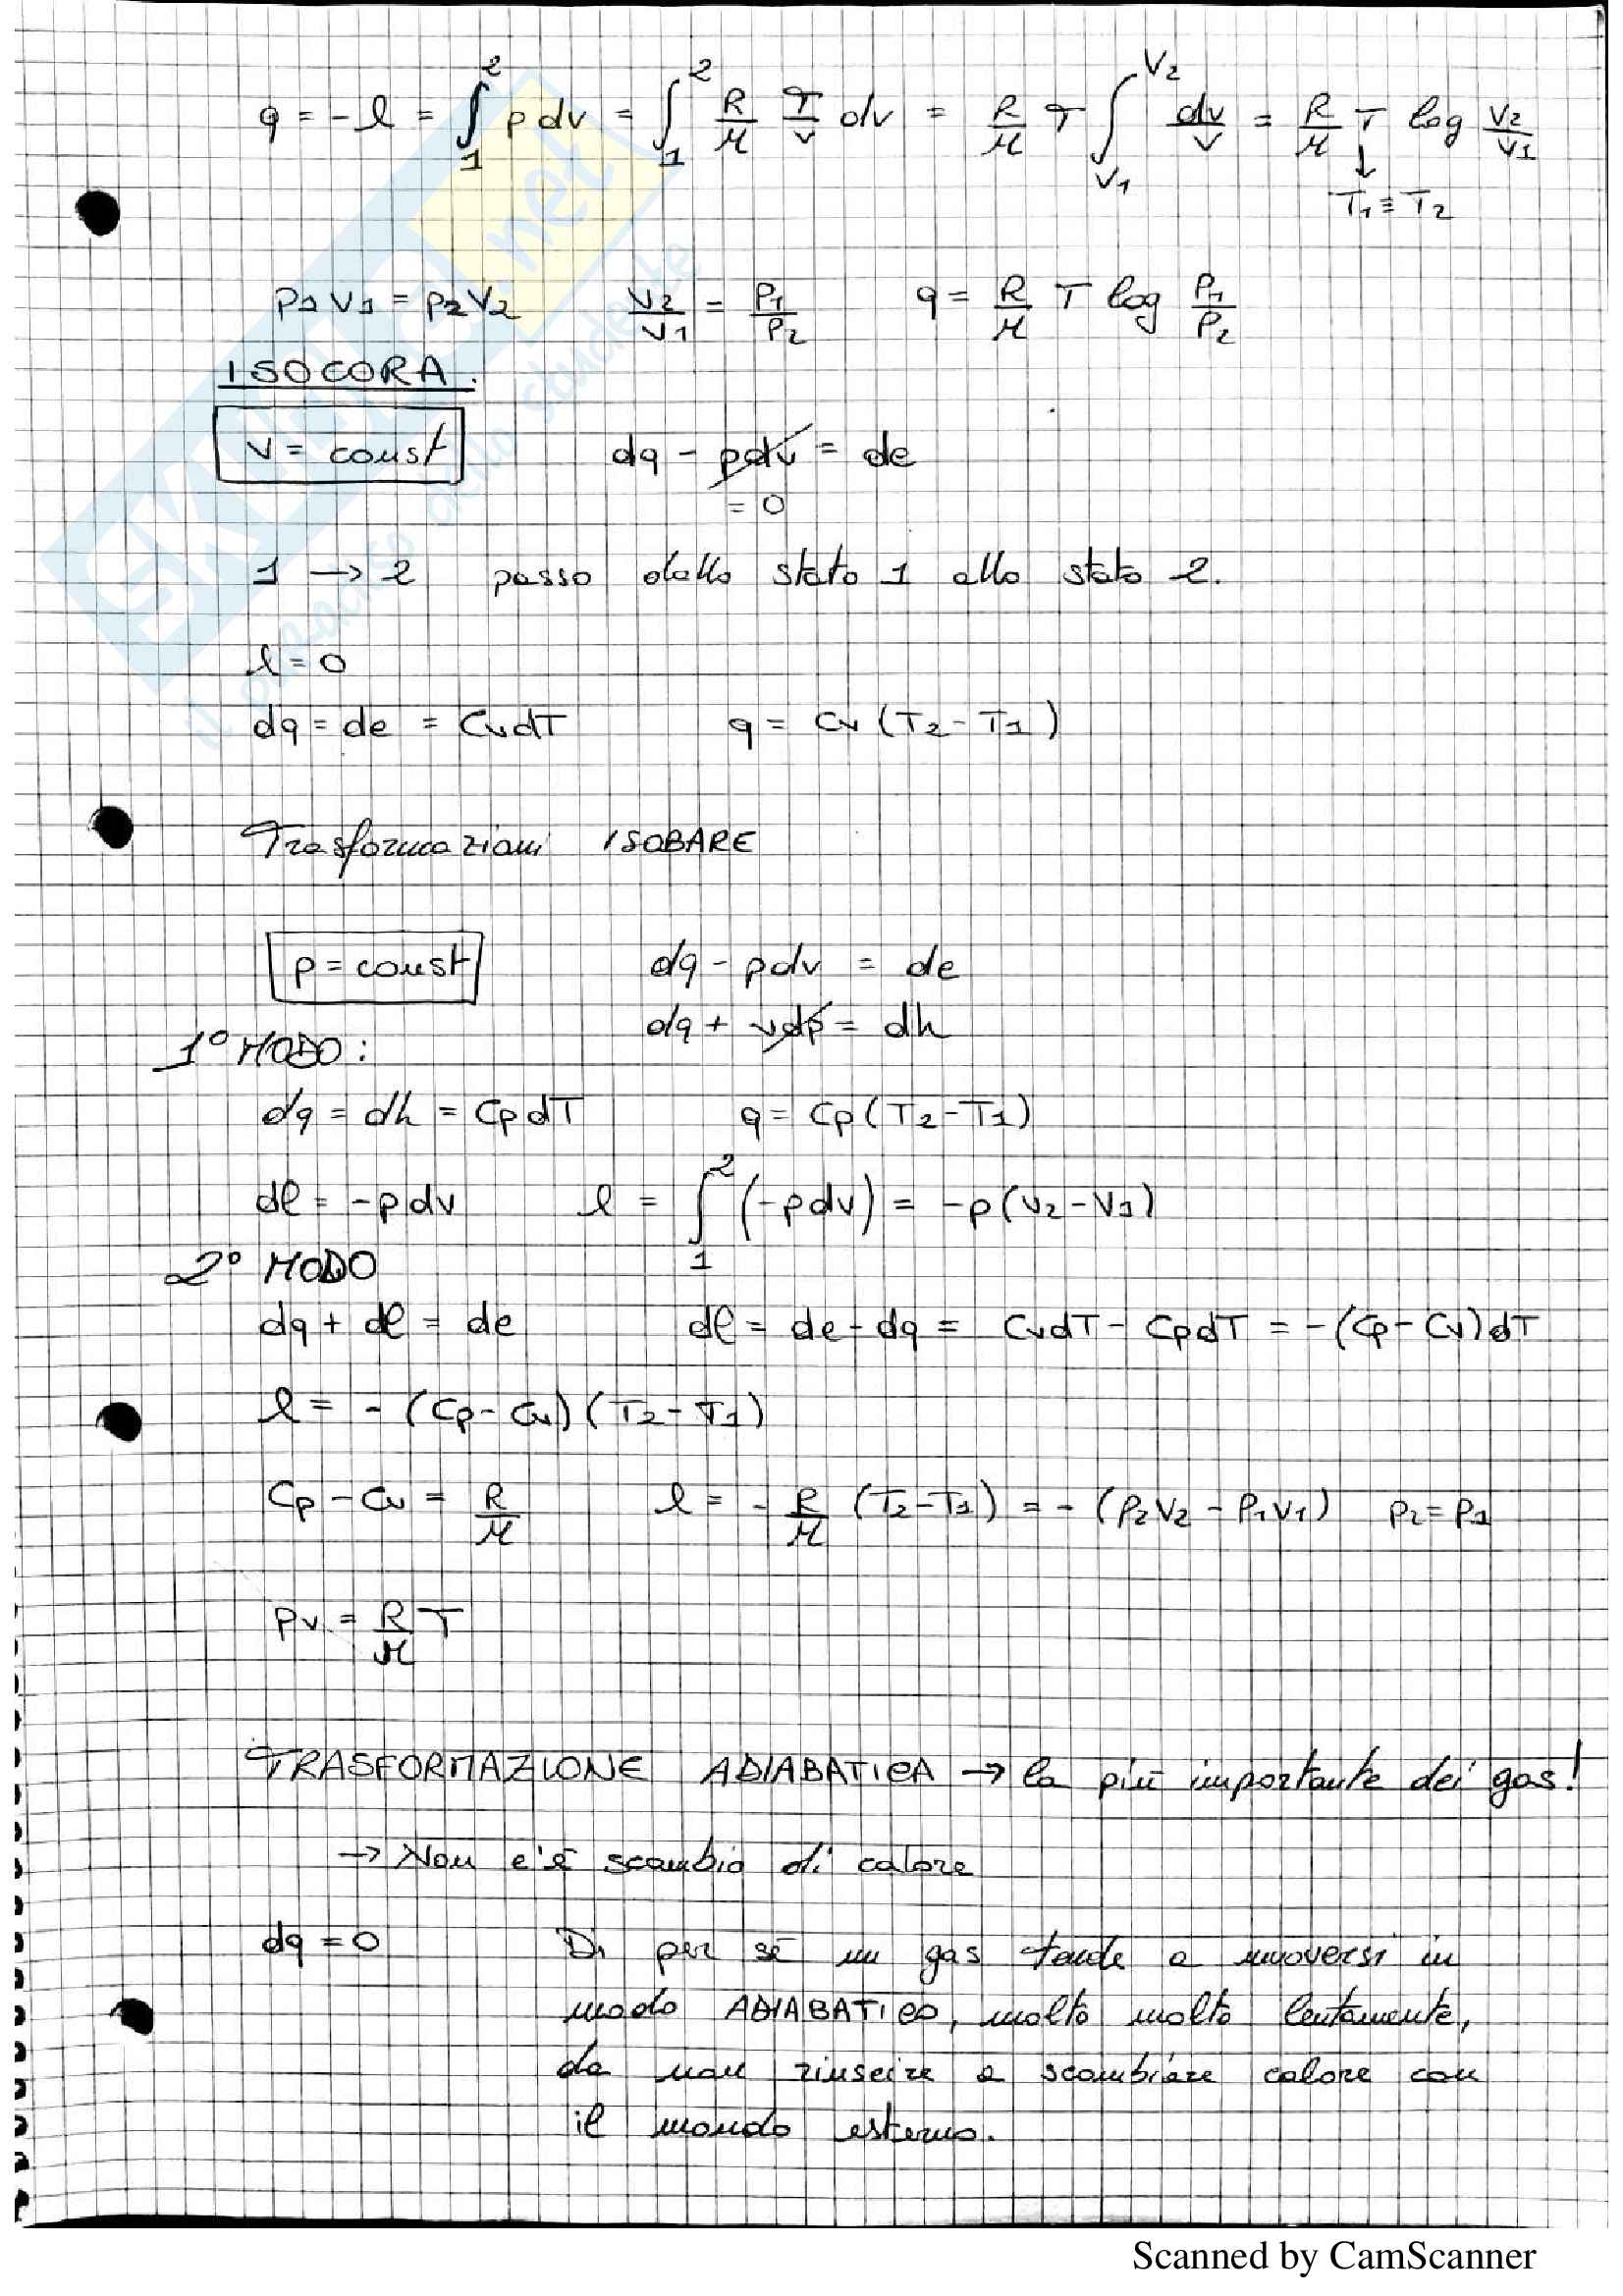 q = -l = ∫₁² p dv = ∫₁² R/M T/v dv = R/M T ∫_{V1}^{V2} dv/v = R/M T log V2/V1
↓
T1 ≡ T2
P1 V1 = P2 V2   V2/V1 = P1/P2   q = R/M T log P1/P2
ISOCORA.
V = const   dq - pdv = de
= 0
1 → 2 passo dallo stato 1 allo stato 2.
l = 0
dq = de = Cv dT   q = Cv (T2 - T1)
Trasformazioni ISOBARE
p = const   dq - pdv = de
dq + vdp = dh
1° MODO:
dq = dh = Cp dT   q = Cp (T2 - T1)
dl = -p dv   l = ∫₁² (-p dv) = -p (V2 - V1)
2° MODO
dq + dl = de   dl = de - dq = Cv dT - Cp dT = -(Cp - Cv) dT
l = - (Cp - Cv) (T2 - T1)
Cp - Cv = R/M   l = - R/M (T2 - T1) = - (P2 V2 - P1 V1)   P2 = P1
pv = R/M T
TRASFORMAZIONE ADIABATICA → la più importante dei gas!
→ Non c'è scambio di calore
dq = 0   Di per sé un gas tende a muoversi in
modo ADIABATICO, molto molto lentamente,
da non riuscire a scambiare calore con
il mondo esterno.
SKUOLA.net
il paradiso dello studente
Scanned by CamScanner